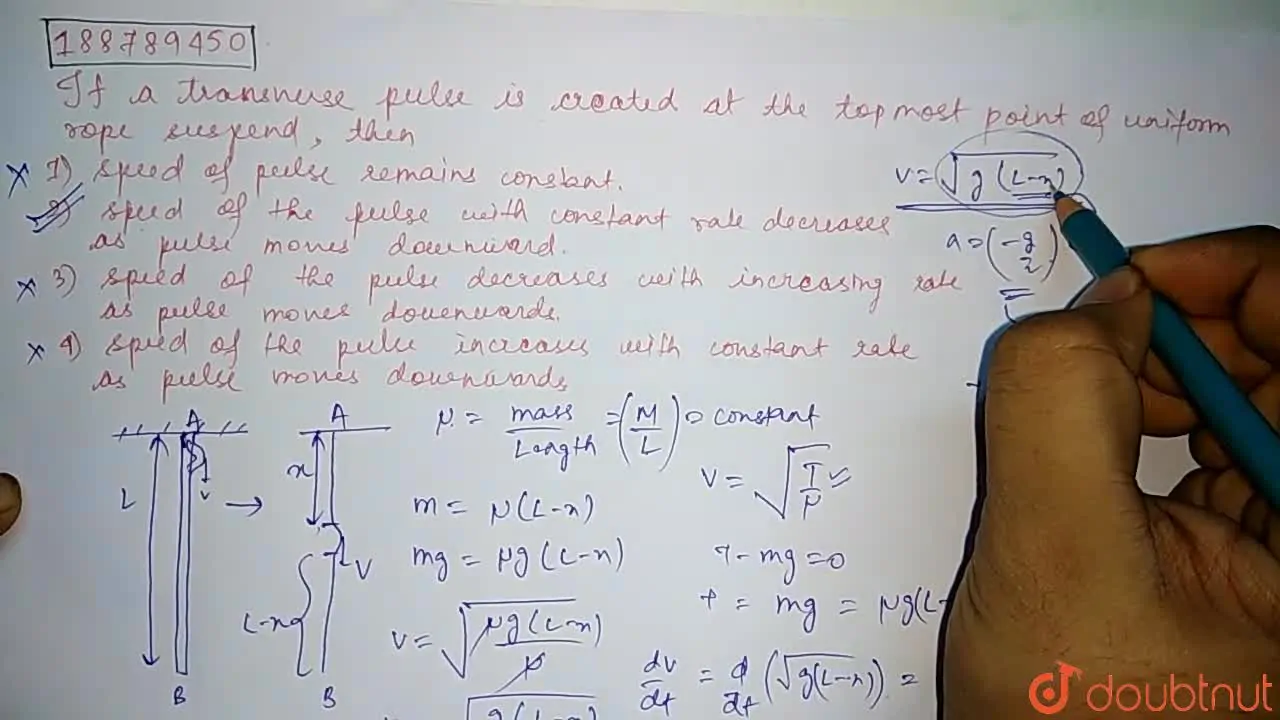 188789450
If a transverse pulse is created at the topmost point of uniform
rope suspend, then
1) speed of pulse remains constant.
2) speed of the pulse with constant rate decreases
as pulse moves downward.
3) speed of the pulse decreases with increasing rate
as pulse moves downwards.
4) speed of the pulse increases with constant rate
as pulse moves downwards
V = √g(L-x)
a = (-g/2)
A
L
V
B
A
x
V
L-x
B
μ = mass/Length = (M/L) = constant
m = μ(L-x)
mg = μg(L-x)
V = √μg(L-x)/μ
√g(L-x)
V = √T/μ
T - mg = 0
T = mg = μg(L-
dv/dt = d/dt (√g(L-x)) =
doubtnut